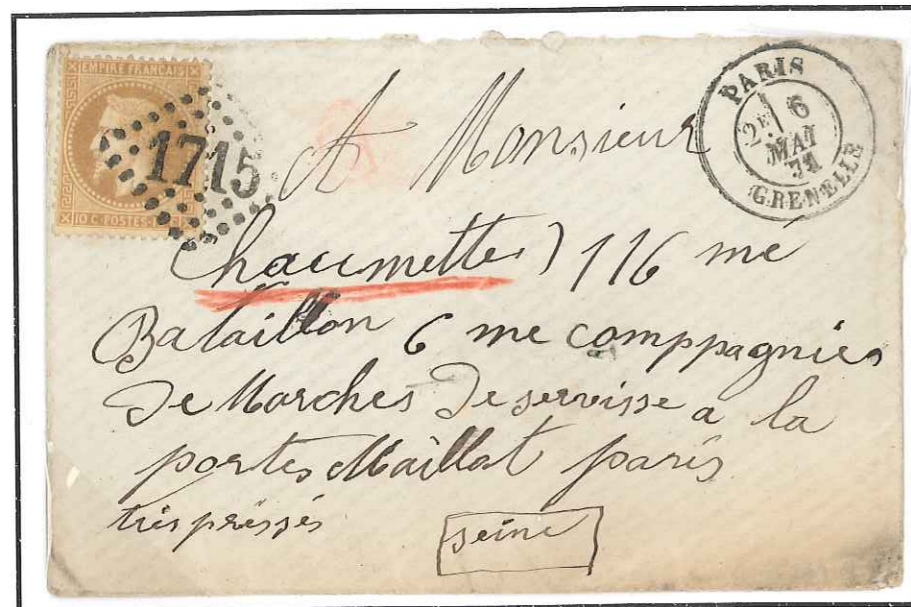 EMPIRE FRANÇAIS
10 C. POSTES
1715
PARIS
2E 6
MAI
71
GRENELLE
A Monsieur
Chaumettes) 116 me
Bataillon 6 me comppagnies
De Marches De servisse a la
portes Maillot paris
très pressés
seine